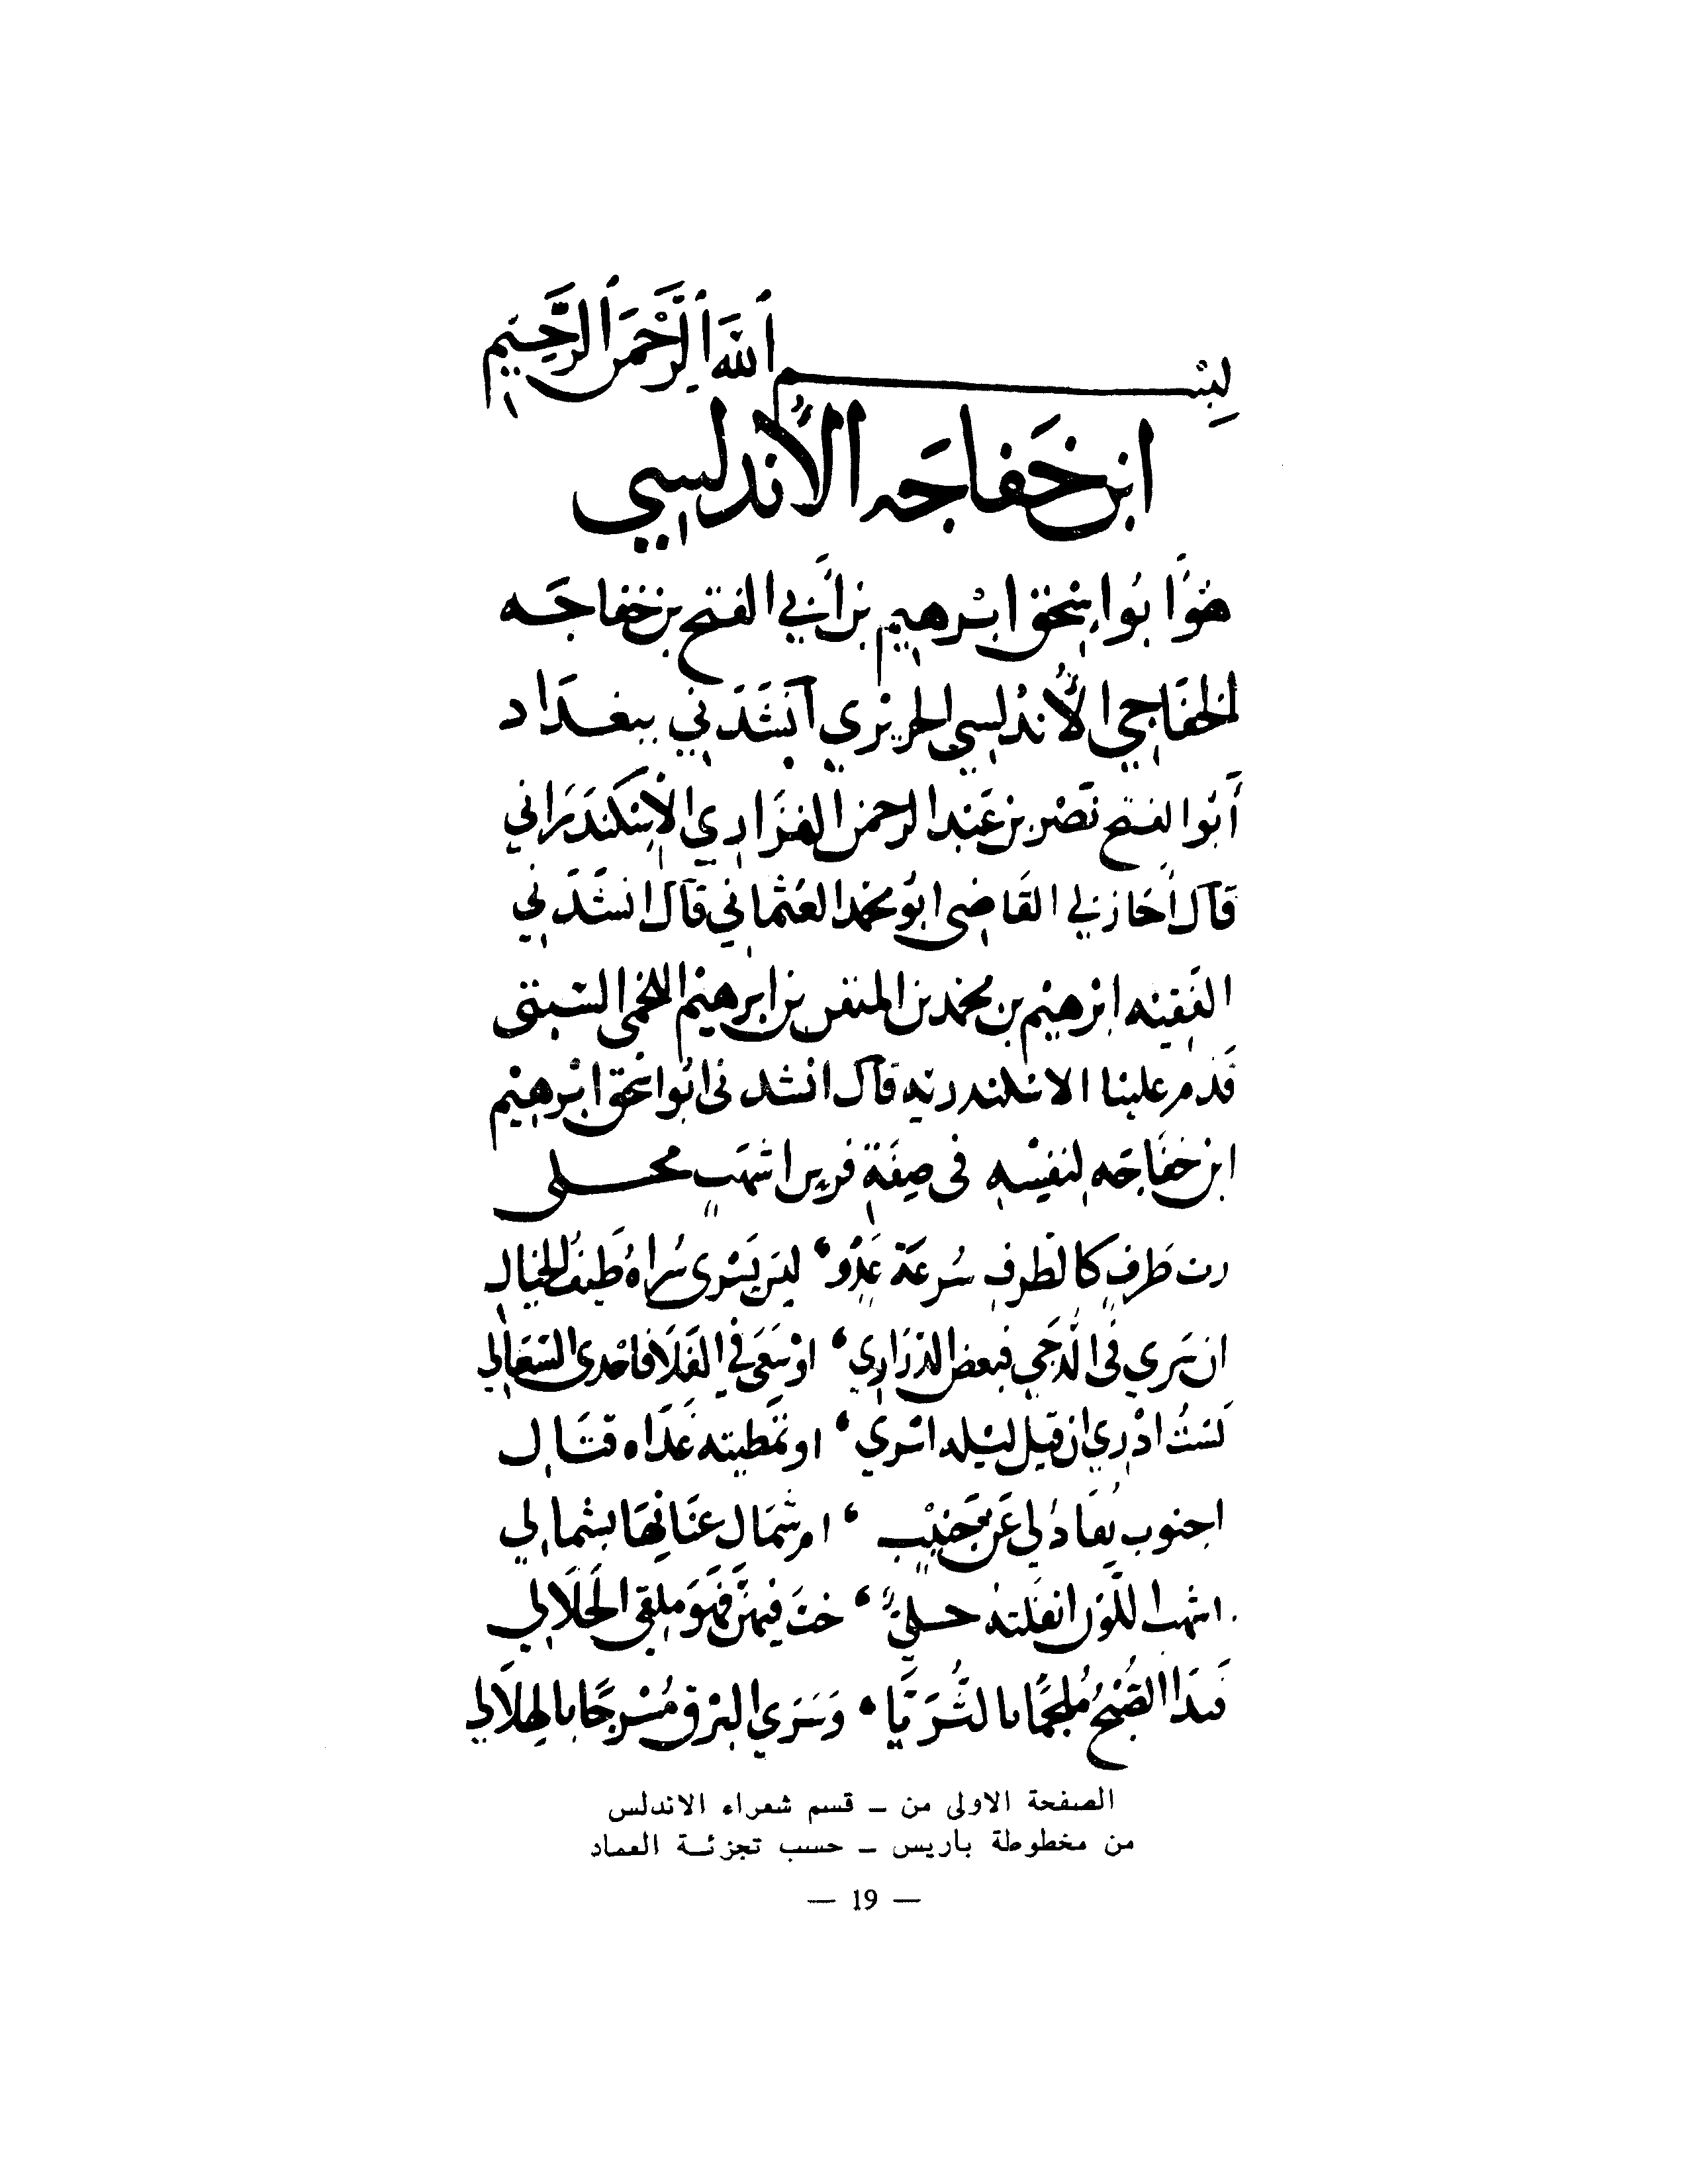 بِسْم اللهِ الرَّحْمَنِ الرَّحِيمِ
ابن خَفاجَه الأندلسِي
هُوَ أبُو إسْحق ابْرهِيم بن أبي الفتح بن خفاجَه
الخفَاجِي الأُنْدلسِي الجزيري أنشَدَنِي ببغداد
أَبُو الفتح نَصْر بن عَبْد الرحمن الفَزَاري الإسْكندَرَانِي
قالَ أخَازني القَاضِى ابُو محمد العُثمانِي قالَ انشَدَنِي
الفَقِيْه ابْرهِيْم بن مُحمَد بن المنقن بن ابرهيْم اللخمى السَبتى
قَدم علينا الاسكندريه قال انشدنى ابُو اسْحق ابْرهِيْم
ابن خفَاجَه لِنفسِهِ فى صِفَةِ فرس اشهَبٍ محلى
رب طَرفٍ كالطَرفِ سُرعَة عَدْوٍ ليسَ يَسْرى سُراهُ طَيفُ الخيالِ
ان سَرى فى الدُجَى فبعض الدَرَارِي او سَعَى في الفَلا فاحْدى السَعَالِى
لَسْتُ ادْرِي ان قيل ليله اسْري او تمَطيته غَدَاه قتَالِ
اجنوب يُقَادُ لي عَن جَنِيْبٍ ام شمَال عنَانهَا بشمالِي
اشهب اللَّون اثقَلته حُليٌّ خبَّ فيهنَّ فهوَ ملقِى الجَلَالِ
فبَدَا الصُبْحُ مُلجَمًا بالثُّرَيَّا وَسَرَى البَرْقِ مُسْرجًا بالهِلَالِ
الصفحة الاولى من – قسم شعراء الاندلس
من مخطوطة باريس – حسب تجزئة العماد
— 19 —